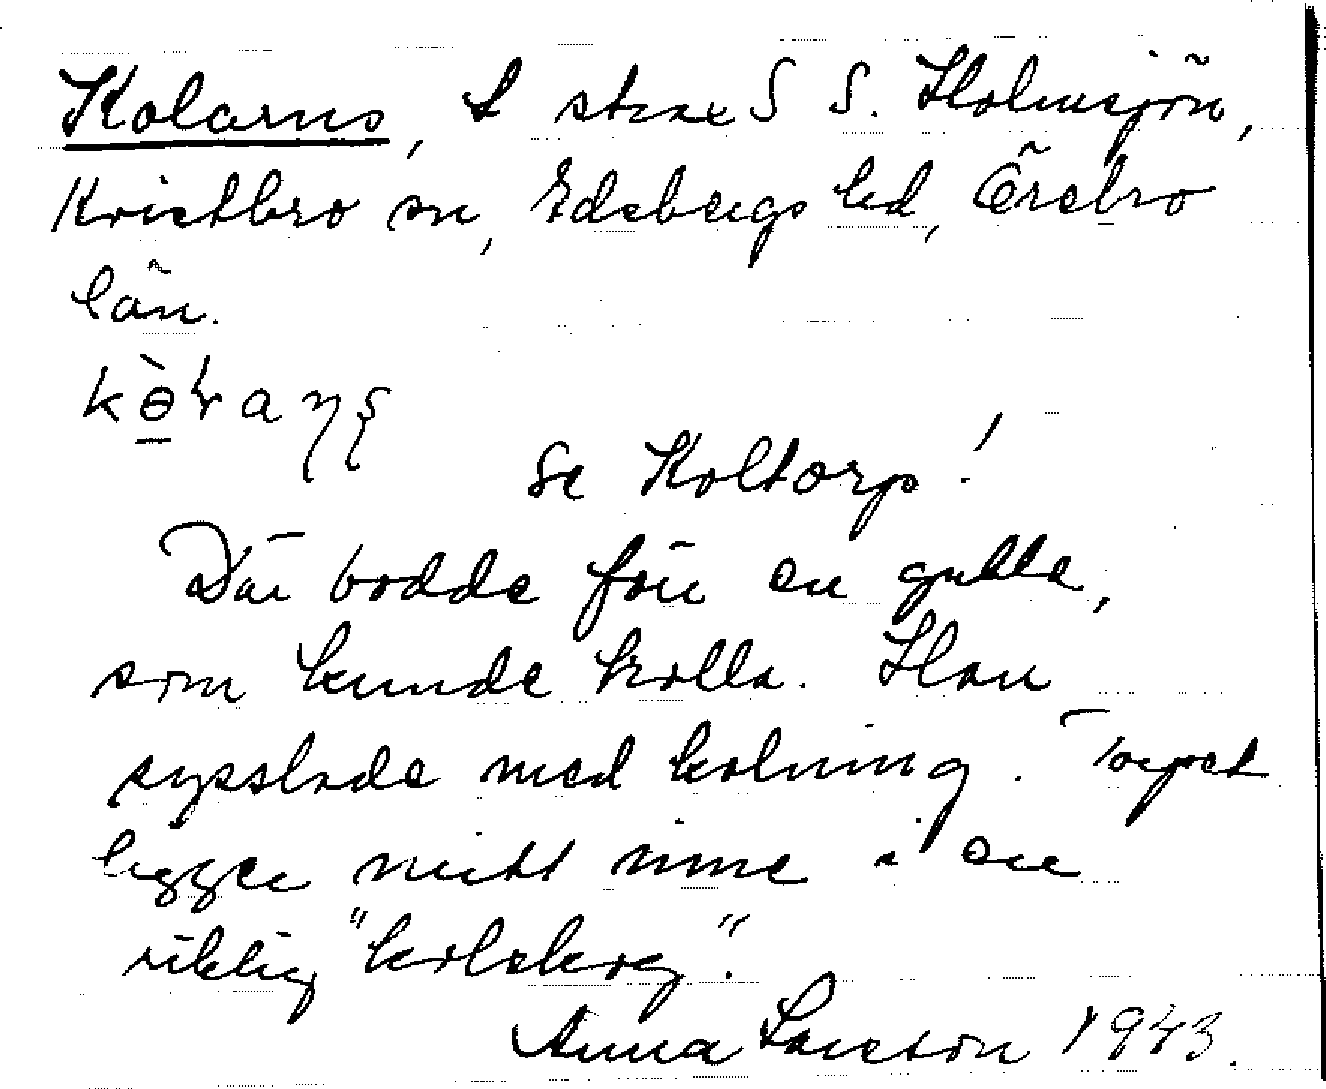 Kolarns, t strax S S. Holmsjön,
Kvistbro sn, Edsbergs hd, Örebro
län.
Se Koltorp!
Där bodde förr en gubbe,
som kunde trolla. Han
sysslade med kolning. Torpet
ligger mitt inne i en
riktig "kolskog".
Anna Larsson 1943.